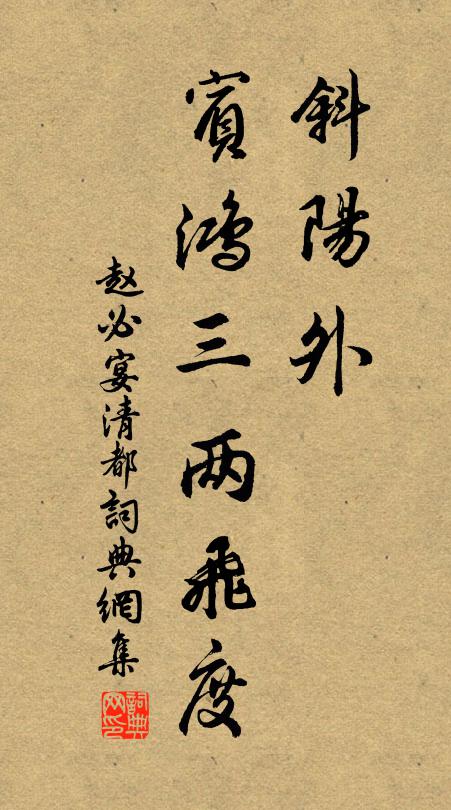 斜陽外
賓鴻三两飛度
赵必宴清都詞典網集
詞典網印